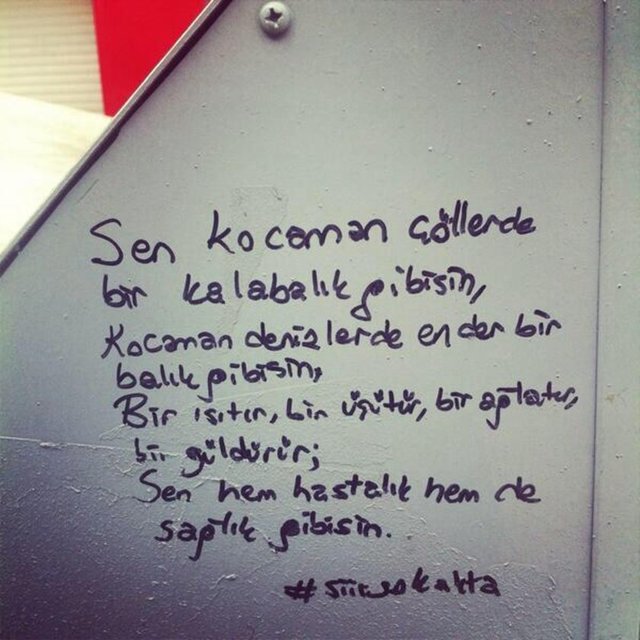 Sen kocaman çöllerde
bir kalabalık gibisin,
Kocaman denizlerde ender bir
balık gibisin,
Bir ısıtır, bir üşütür, bir ağlatır,
bir güldürür;
Sen hem hastalık hem de
sağlık gibisin.
#şiirsokakta